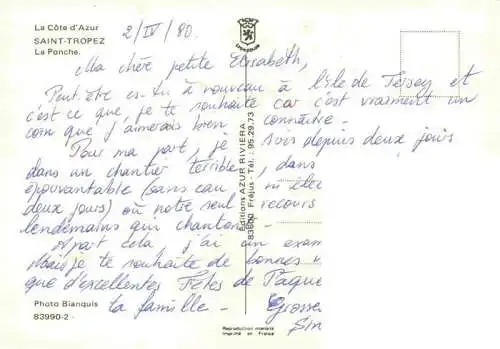 La Côte d'Azur
SAINT-TROPEZ
La Ponche.
2/IV/80.
Ma chère petite Elisabeth,
Peut être es-tu à nouveau à l'île de Jersey et
c'est ce que je te souhaite car c'est vraiment un
coin que j'aimerais bien connaître.
Pour ma part, je suis depuis deux jours
dans un chantier terrible, dans
épouvantable (sans eau ni élec
deux jours) où notre seul recours
lendemains qui chantent
A part cela, j'ai un exam
Mais je te souhaite de bonnes v
que d'excellentes Fêtes de Paque
ta famille - Grosse
Sim
Editions AZUR RIVIERA
83600 Fréjus Tél. : 95.29.73
Photo Bianquis
83990-2 -
Reproduction interdite
Imprimé en France